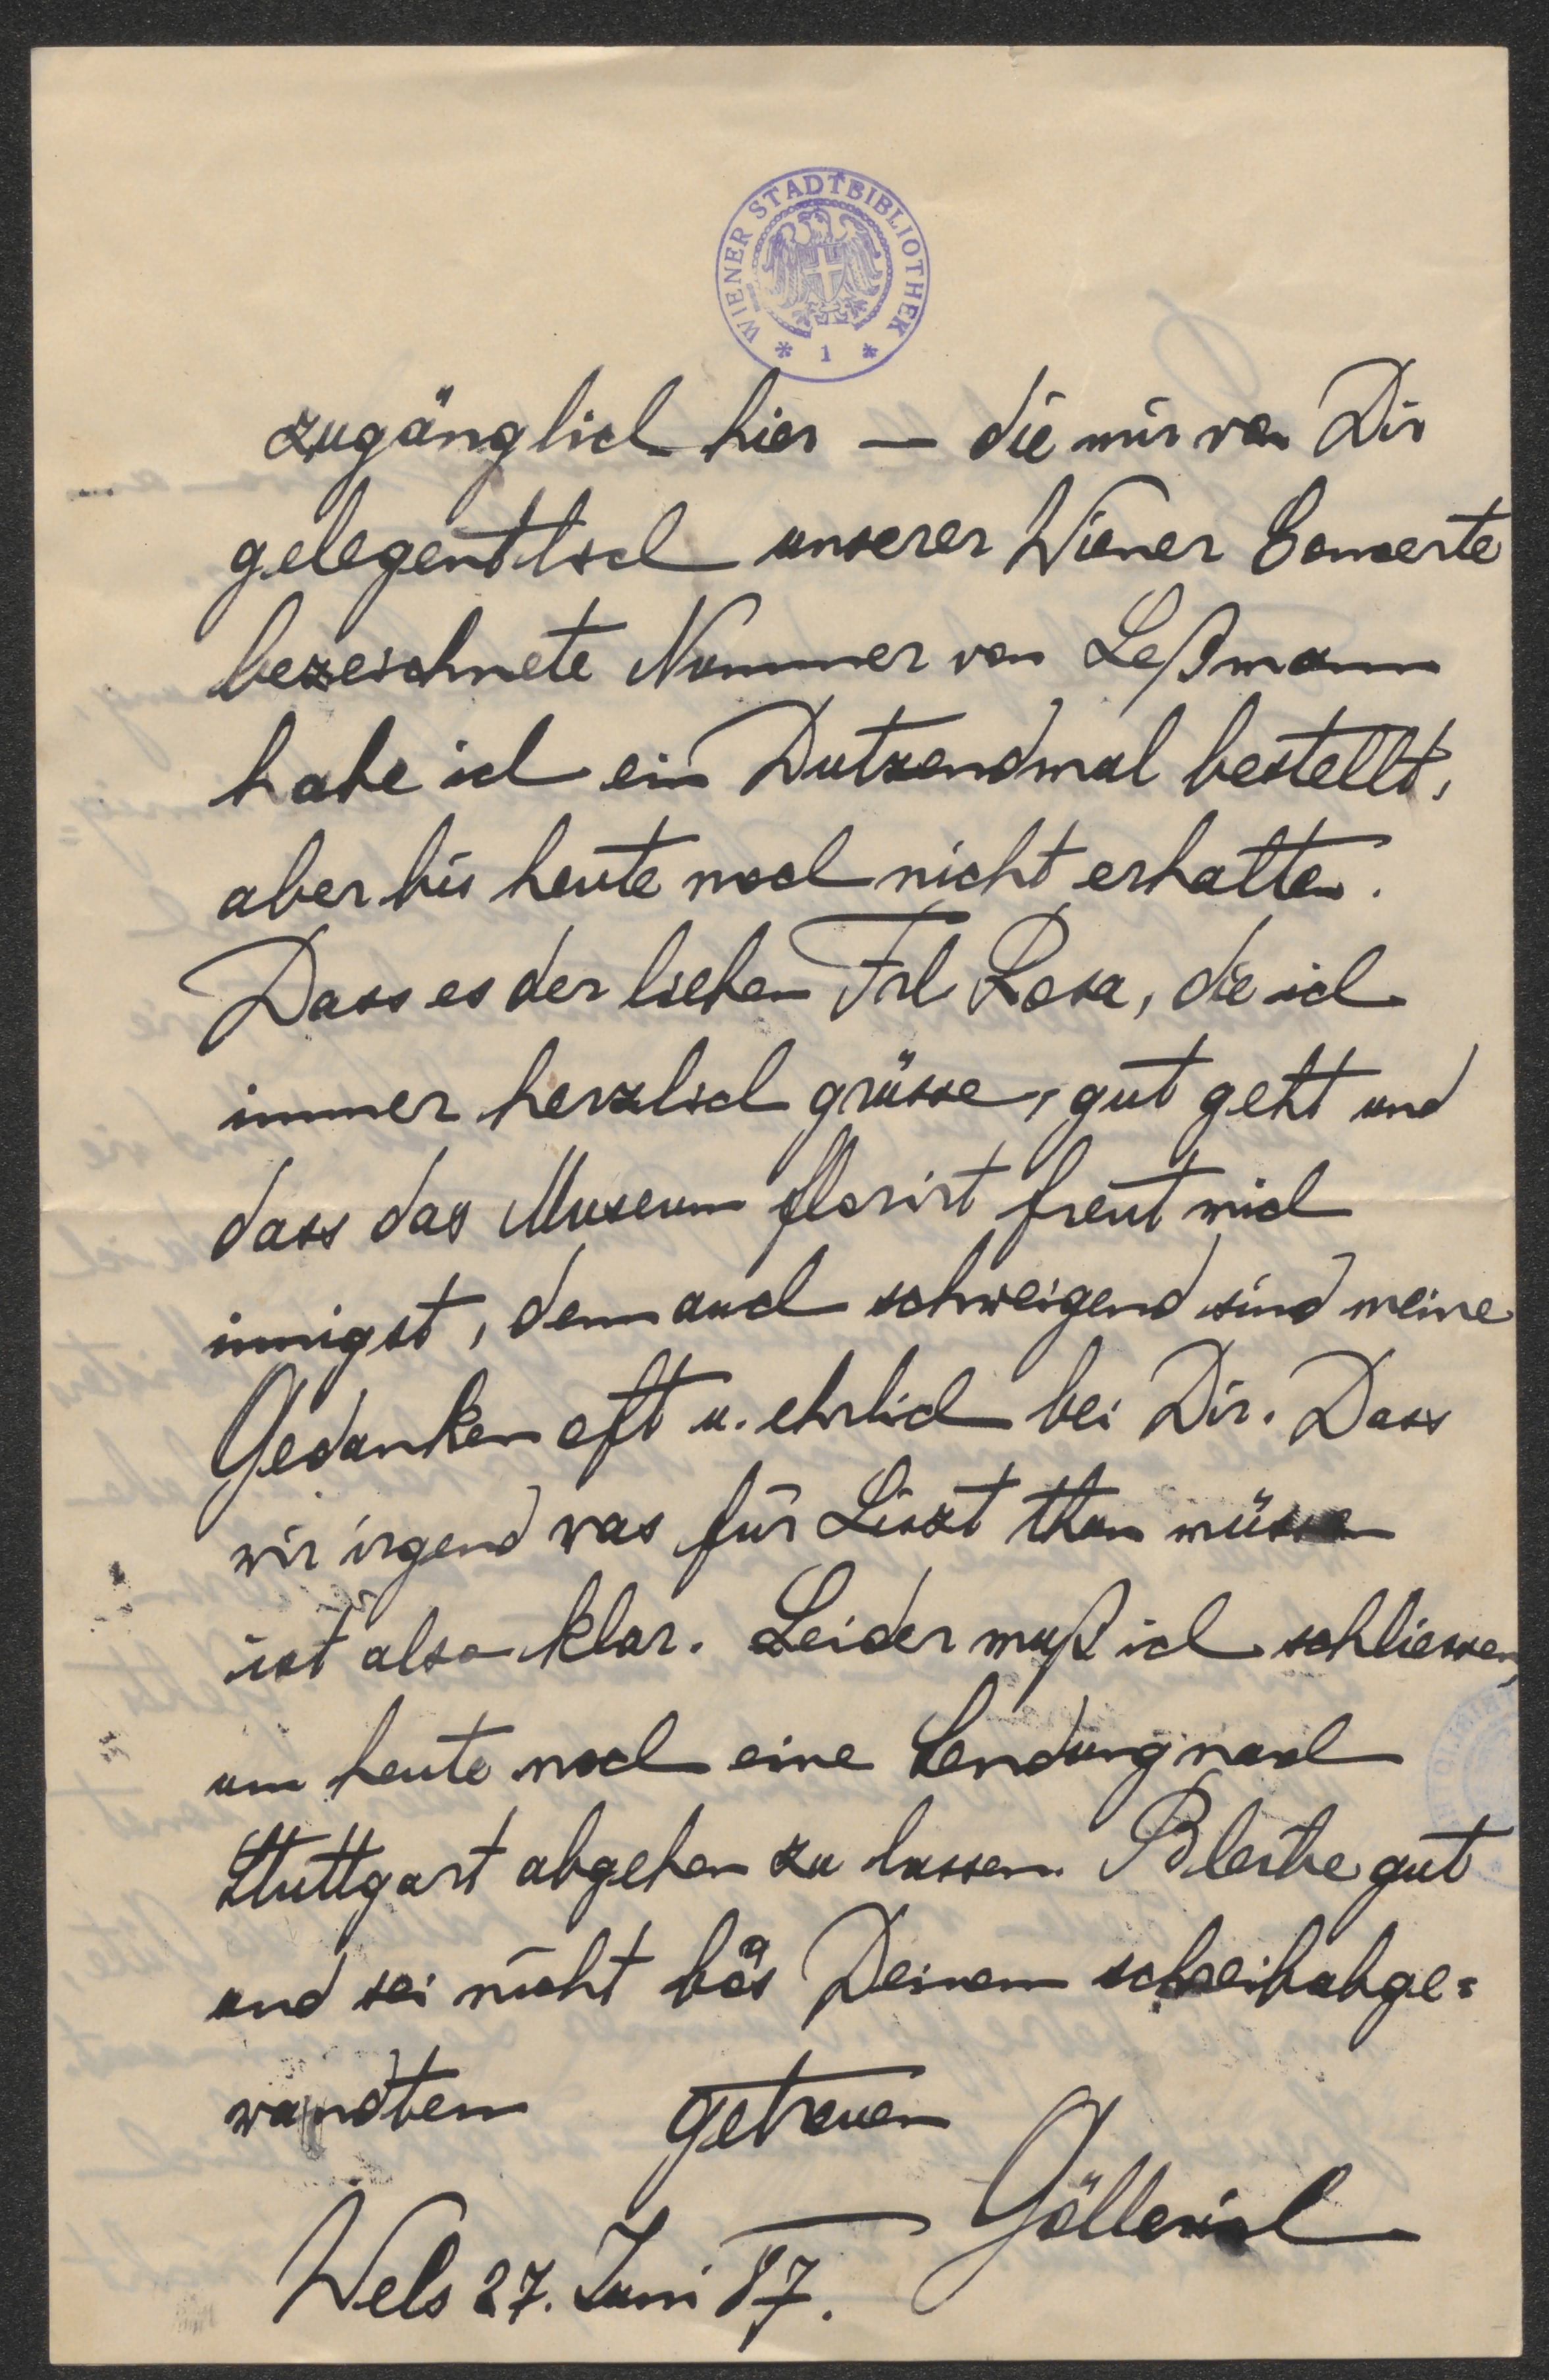 WIENER STADTBIBLIOTHEK
* 1 *
zugänglich hier — die mir von Dir
gelegentlich unserer Wiener Concerte
bezeichnete Nummer von Leßmann
habe ich ein Dutzendmal bestellt,
aber bis heute noch nicht erhalten.
Dass es der lieben Frl Rosa, die ich
immer herzlich grüsse, gut geht und
dass das Museum florirt freut mich
innigst, denn auch schweigend sind meine
Gedanken oft u. ehrlich bei Dir. Dass
wir irgend was für Liszt thun müssen
ist also klar. Leider muß ich schliessen,
um heute noch eine Sendung nach
Stuttgart abgehen zu lassen. Bleibe gut
und sei nicht bös Deinem schreibabge=
wandten getreuen
Göllerich
Wels 27. Juni 87.